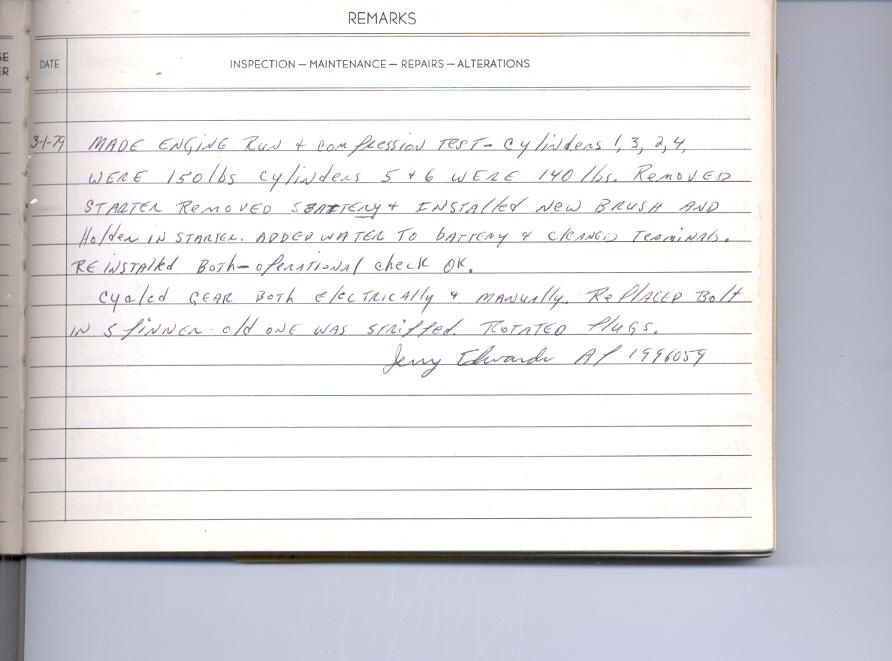 REMARKS
SE
ER
DATE INSPECTION — MAINTENANCE — REPAIRS — ALTERATIONS
3-1-79 MADE ENGINE RUN & COMPRESSION TEST - Cylinders 1, 3, 2, 4,
WERE 150 lbs Cylinders 5 & 6 WERE 140 lbs. REMOVED
STARTER REMOVED BATTERY & INSTALLED NEW BRUSH AND
Holder IN STARTER. ADDED WATER TO BATTERY & CLEANED TERMINALS.
REINSTALLED BOTH - OPERATIONAL CHECK OK.
Cycled GEAR BOTH ELECTRICALLY & MANUALLY. REPLACED Bolt
IN SPINNER - old ONE WAS STRIPPED. ROTATED PLUGS.
Jerry Edwards AP 1996059